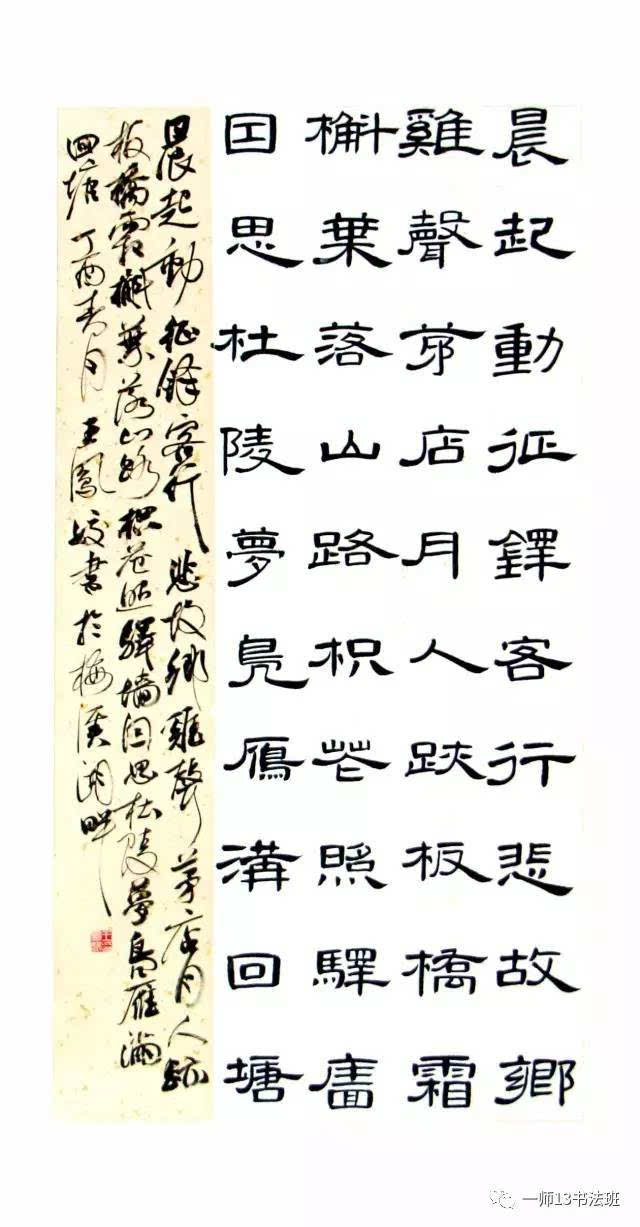 晨起動征鐸客行悲故鄉
雞聲茅店月人跡板橋霜
槲葉落山路枳花照驛廧
囙思杜陵夢鳧鴈滿回塘
晨起動征鐸客行悲故鄉雞聲茅店月人跡
板橋霜槲葉落山路枳花照驛墻因思杜陵夢鳧雁滿
回塘 丁酉春月 王鳳姣書於梅溪湖畔
一师13书法班